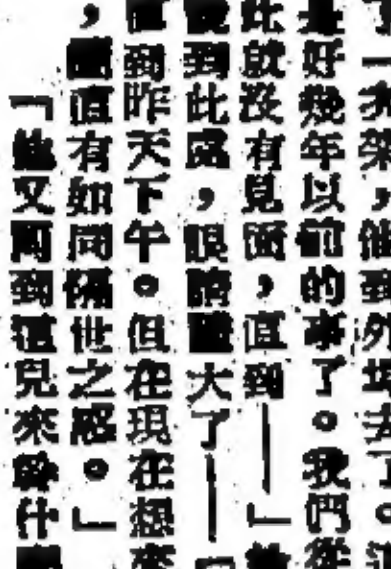 了一架，他到外埠去了。
是好幾年以前的事了。我們從
此就沒有見面，直到——」
說到此處，眼睛睜大了——「
直到昨天下午。但在現在想來
，簡直有如同隔世之感。」
「他又回到這兒來幹什